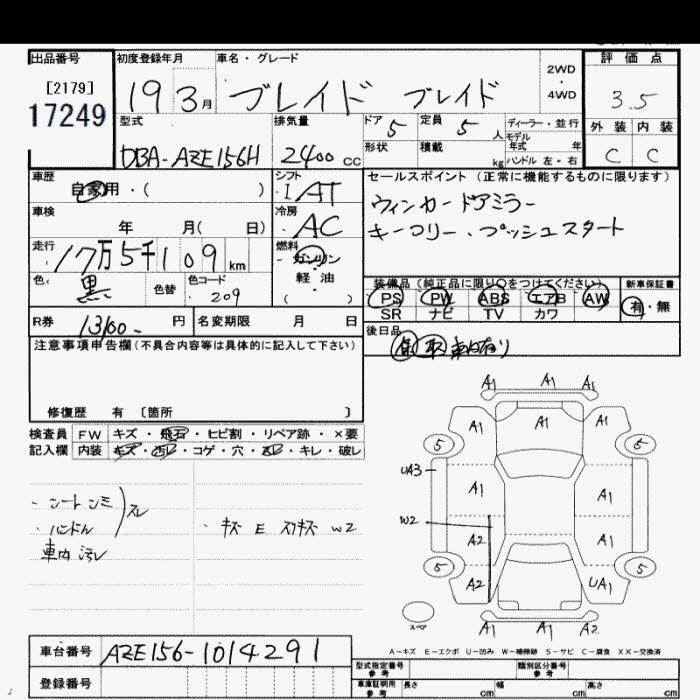 出品番号 初度登録年月 車名・グレード 評価点
[2179] 2WD
17249 19 3月 ブレイド ブレイド ・ 3.5
4WD
型式 排気量 ドア 5 定員 5 人 ディーラー・並行 外装 内装
モデル
年式 年
DBA-AZE156H 2400 CC 形状 積載 kg ハンドル 左・右 C C
車歴 シフト セールスポイント (正常に機能するものに限ります)
自家用・( ) ・I AT ウィンカードアミラー
車検 冷房 キーフリー、プッシュスタート
年 月( 日) ・AC
走行 燃料
17万5千109 km ・ガソリン
色 黒 色替 色コード 209 軽・油 装備品 (純正品に限り○をつけてください) 新車保証書
( ) PS PW ABS エアB AW 有・無
R券 13160- 円 名変期限 月 日 SR ナビ TV カワ
注意事項申告欄(不具合内容等は具体的に記入して下さい) 後日品
保 取 車内有り
修復歴 有 〔箇所 〕
検査員 FW キズ・飛石・ヒビ割・リペア跡・×要
記入欄 内装 キズ・汚レ・コゲ・穴・凹レ・キレ・破レ
・シートシミ
・ハンドル スレ ・キズ E スリキズ W2
車内汚レ
A1 A1 A1
A1 A1 A1
5 5
UA3
A1 A1
W2
A2 A1
5 5
A2 UA1
スペア
A1 A1 A2
A−キズ E−エクボ U−凹み W−補修跡 S−サビ C−腐食 XX−交換済
車台番号 AZE156-1014291
型式指定番号 参考 類別区分番号 参考
登録番号 車庫証明用 参考 長さ cm 幅 cm 高さ cm